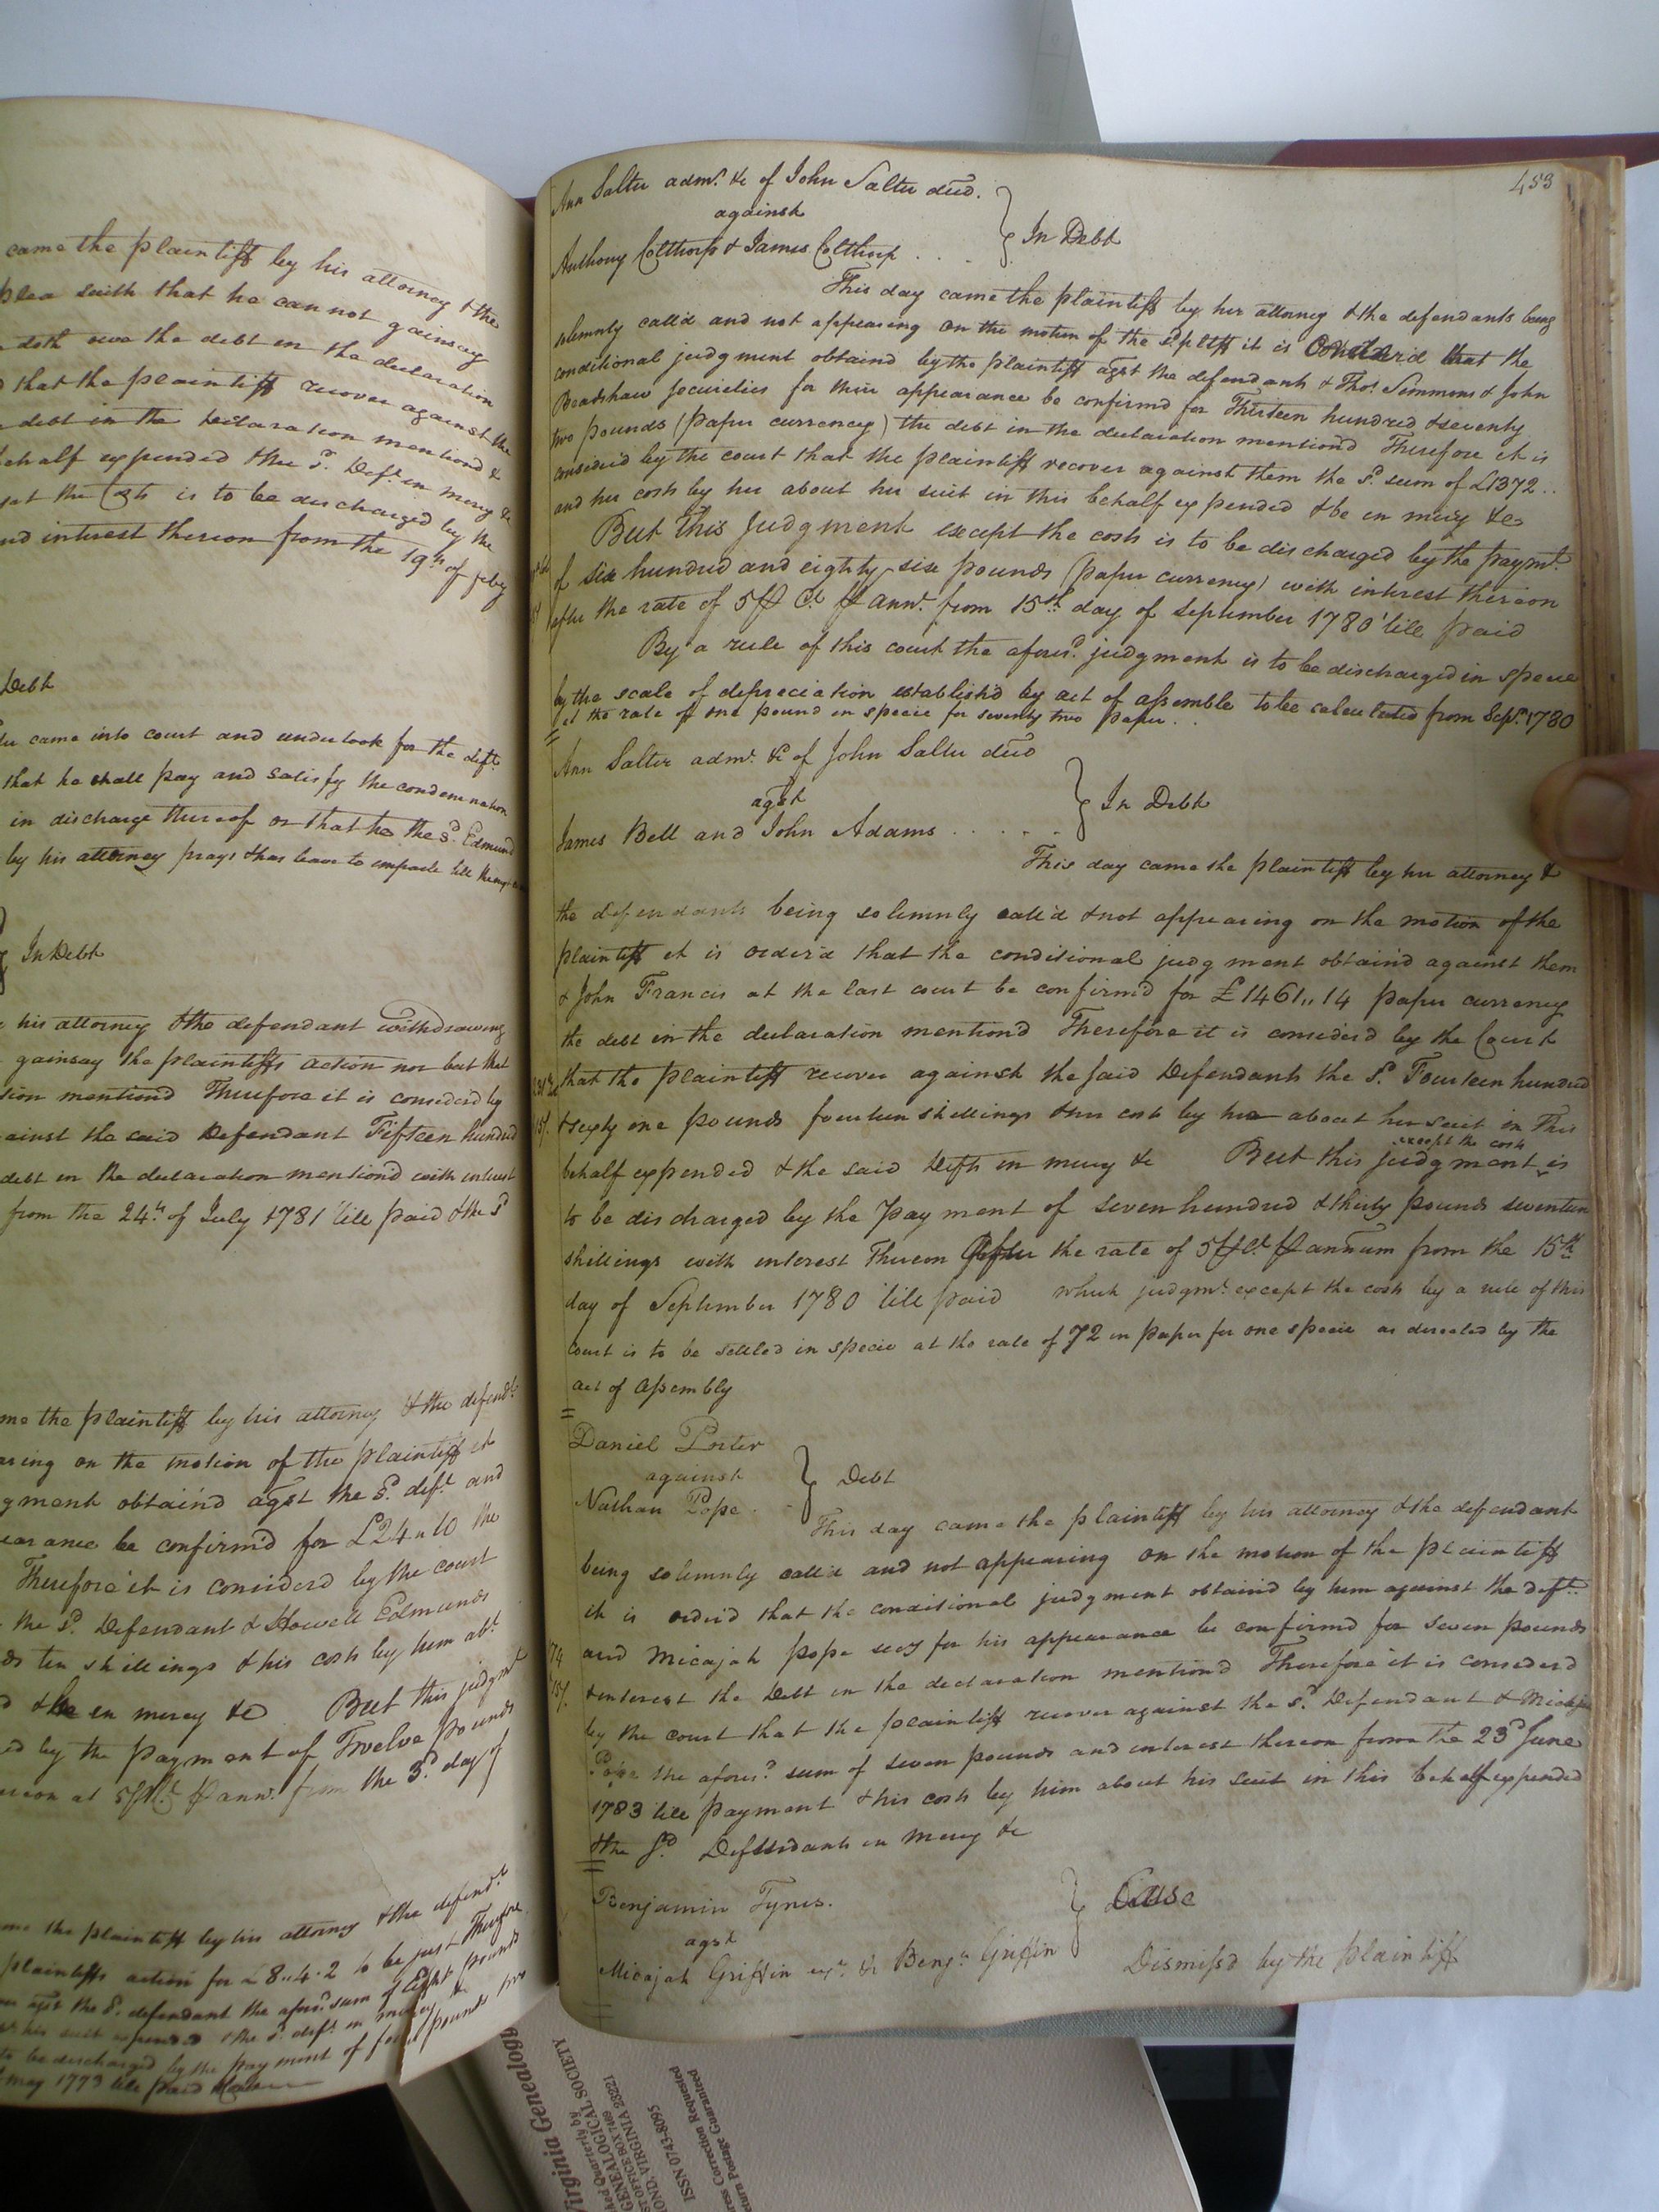 came the plaintiff by his attorney & the
plea saith that he cannot gainsay
doth owe the debt in the declaration
that the plaintiff recover against the
debt in the declaration mentiond &
behalf expended the sd. Deft. in mercy &
the Costs is to be discharged by the
and interest thereon from the 19th of feby
Debt
came into court and undertook for the deft.
that he shall pay and satisfy the condemnation
in discharge thereof or that he the sd Edmund
by his attorney prays & has leave to imparle till the
In Debt
his attorney & the defendant withdrawing
gainsay the plaintiffs action nor but that
mentiond Therefore it is considerd by
against the said Defendant Fifteen hundred
debt in the declaration mention'd with interest
from the 24th of July 1781 'till paid & the sd
came the plaintiff by his attorney & the defendt.
on the motion of the plaintiff it
obtain'd agst the sd. deft and
be confirm'd for £24"10 the
Therefore it is considerd by the court
the sd. Defendant & Howell Edmunds
ten shillings & his costs by him abt.
& be in mercy &c But this judgmt
by the payment of Twelve pounds
at 5 P Ct. P ann. from the 3d day of
the plaintiff by his attorney & the defendt
plaintiffs action for £8"4.2 to be just Therefore
agst the sd. defendant the aforesd. sum of Eight pounds
his suit expended & the sd. deft. in mercy &
to be discharged by the payment of four pounds two
may 1773 till paid
453
Ann Salter adm. &c of John Salter decd.
against
Anthony Colthorp & James Colthorp . . .
In Debt
This day came the plaintiff by her attorney & the defendants being
solemnly call'd and not appearing on the motion of the sd pltff it is Considerd that the
conditional judgment obtaind by the plaintiff agst the defendants & Thos. Simmons & John
Bradshaw securities for their appearance be confirmd for Thirteen hundred & seventy
two pounds (paper currency) the debt in the declaration mention'd Therefore it is
considerd by the court that the plaintiff recover against them the sd. sum of £1372..
and her costs by her about her suit in this behalf expended & be in mercy &c
But this Judgment except the costs is to be discharged by the paymt.
of six hundred and eighty six pounds (paper currency) with interest thereon
after the rate of 5 P Ct P ann. from 15th day of September 1780 'till paid
By a rule of this court the aforesd. judgment is to be discharged in specie
by the scale of depreciation establish'd by act of assemble to be calculated from Sepr. 1780
at the rate of one pound in specie for seventy two paper . .
Ann Salter adm. &c of John Salter decd
agst
James Bell and John Adams . . . . .
In Debt
This day came the plaintiff by her attorney &
the defendants being solemnly call'd & not appearing on the motion of the
plaintiff it is order'd that the conditional judgment obtaind against them
& John Francis at the last court be confirm'd for £1461,,14 paper currency
the debt in the declaration mention'd Therefore it is considerd by the Court
that the plaintiff recover against the said Defendants the sd. Fourteen hundred
15/.
& sixty one pounds fourteen shillings & her costs by her about her suit in This
behalf expended & the said Defts in mercy &c But this judgment except the costs is
to be discharged by the Payment of seven hundred & thirty pounds seventeen
shillings with interest thereon After the rate of 5 P Ct P annum from the 15th
day of September 1780 'till paid which judgmt. except the costs by a rule of this
Court is to be settled in specie at the rate of 72 in paper for one specie as directed by the
act of Assembly
Daniel Porter
against
Nathan Pope .
Debt
This day came the plaintiff by his attorney & the defendant
being solemnly call'd and not appearing on the motion of the plaintiff
it is orderd that the conditional judgment obtaind by him against the deft.
74
and Micajah Pope secy for his appearance be confirmd for seven pounds
15/.
& interest the Debt in the declaration mention'd Therefore it is considerd
by the court that the plaintiff recover against the sd. Defendant & Micajah
Pope the aforesd. sum of seven pounds and interest thereon from the 23d June
1783 till payment & his costs by him about his suit in this behalf expended
& the sd Defendants in mercy &c
Benjamin Tynes.
agst
Micajah Griffin exr. &c Benjn Griffin
Case
Dismiss'd by the plaintiff
Virginia Genealogi
GENEALOGICAL SOCIETY
OST OFFICE BOX 7469
OND, VIRGINIA 23221
ISSN 0743-8095
ress Correction Requested
eturn Postage Guaranteed